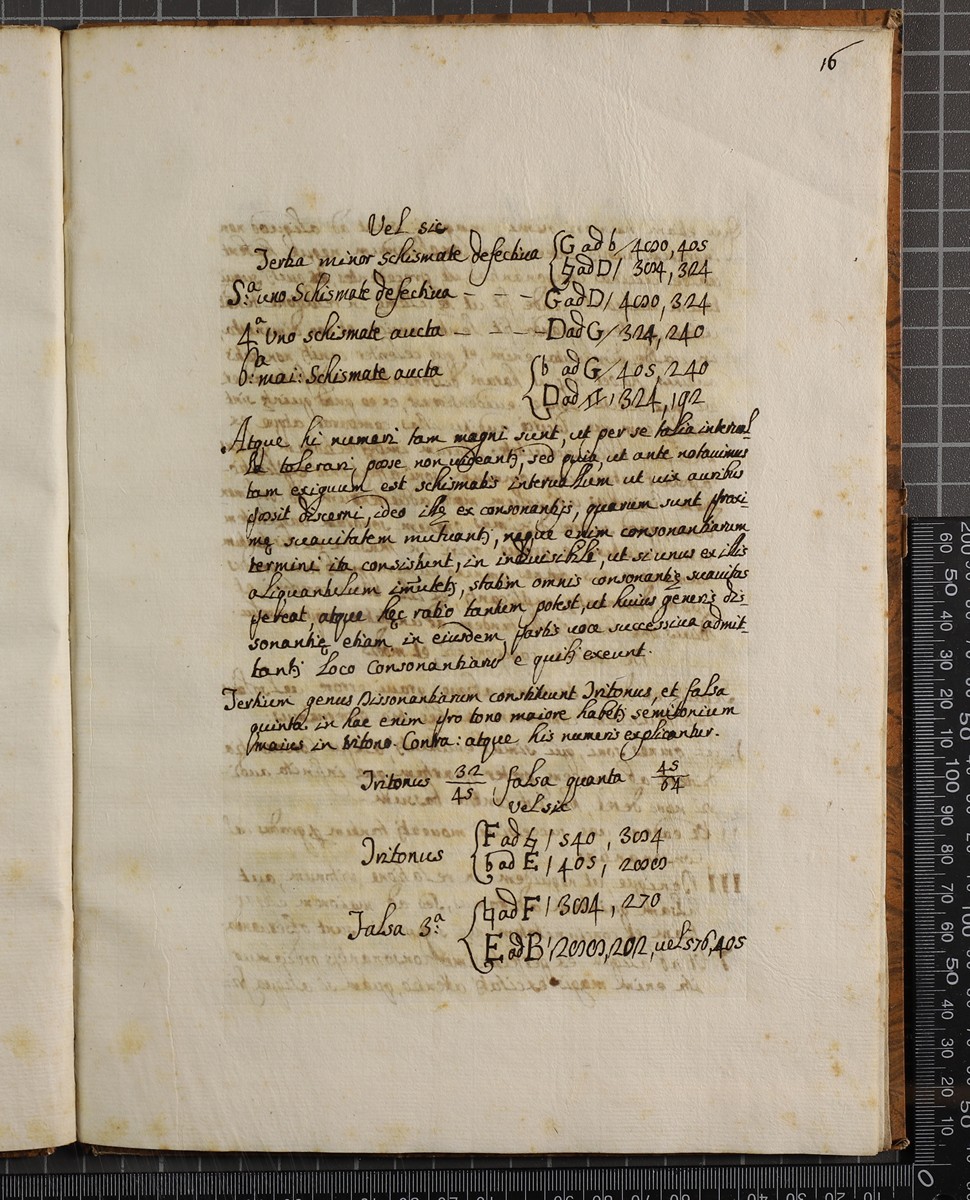 16
Vel sic
Tertia minor schismate defectiva { G ad b / 480, 405
♮ ad D / 384, 324
5.ª uno Schismate defectiva - - - G ad D / 480, 324
4.ª Uno schismate aucta - - - - D ad G / 324, 240
6.ª mai: Schismate aucta { b ad G / 405, 240
D ad ♮ / 324, 192
Atque hi numeri tam magni sunt, ut per se talia interval-
la tolerari posse non videantʒ, sed quia, ut ante notavimus
tam exiguum est schismatis intervallum ut vix auribus
possit discerni, ideo illę ex consonantijs, quarum sunt proxi-
mę suavitatem mutuantʒ, neque enim consonantiarum
termini ita consistunt, in indivisibili, ut si unus ex illis
aliquantulum im̄utetʒ, statim omnis consonantię suavitas
pereat, atque hęc ratio tantum potest, ut huius generis dis-
sonantię etiam in eiusdem partis voce successiva admit-
tantʒ Loco Consonantiarū e quibʒ exeunt.
Tertium genus Dissonantiarum constituunt Tritonus, et falsa
quinta in hac enim pro tono maiore habetʒ semitonium
maius in tritono. Contra: atque his numeris explicantur.
Tritonus 32/45, falsa quanta 45/64
Vel sic
Tritonus { F ad ♮ / 540, 384
b ad E / 405, 288
Falsa 3.ª { ♮ ad F / 384, 270
E ad B / 288, 202, vel 576, 405